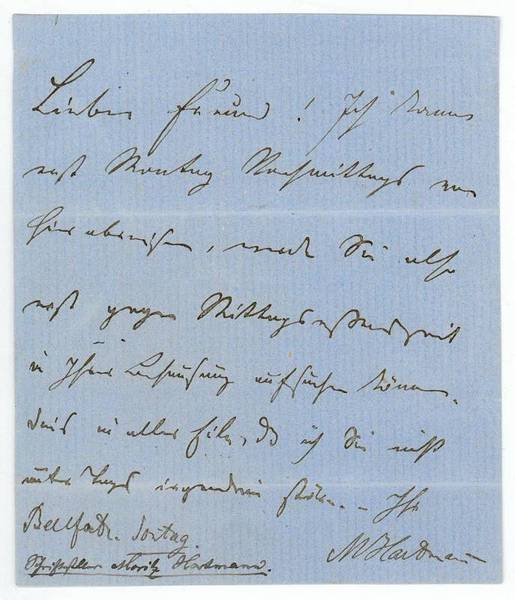 Lieber Freund! Ich kann
erst Montag Nachmittags von
hier abreisen, werde Sie also
erst gegen Mittagessenszeit
in Ihrer Behausung aufsuchen können.
Dies in aller Eile, daß ich Sie nicht
unter Tags irgendwie störe. – Ihr
Sontag. MHartmann
Schriftsteller Moritz Hartmann.